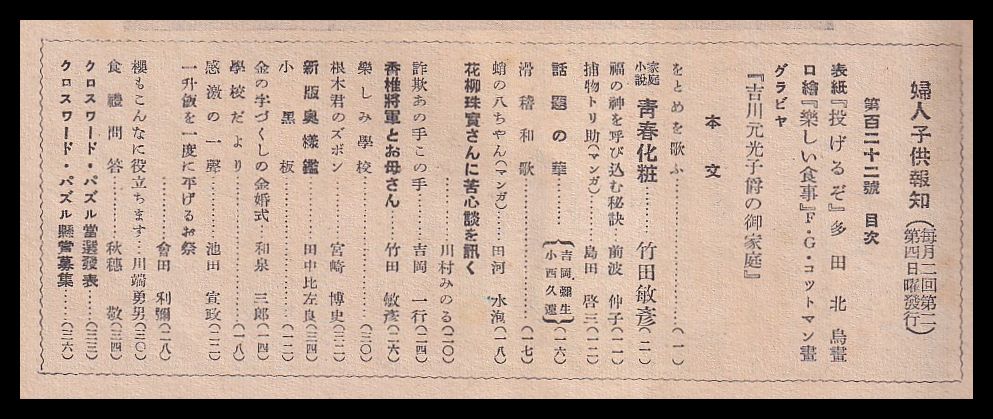 婦人子供報知(毎月二回第二第四日曜發行)
第百二十二號 目次
表紙『投げるぞ』多田北烏畫
口繪『樂しい食事』F・G・コットマン畫
グラビヤ
『吉川元光子爵の御家庭』
本文
をとめを歌ふ………(一)
家庭小説 靑春化粧………竹田敏彦(二)
福の神を呼び込む秘訣…前波仲子(一一)
捕物トリ助(マンガ)………島田啓三(一二)
話題の華………{吉岡彌生 小西久遠}(一六)
滑稽和歌………(一七)
蛸の八ちやん(マンガ)……田河水泡(一八)
花柳珠實さんに苦心談を訊く
………川村みのる(二〇)
詐欺あの手この手……吉岡一行(二四)
香椎將軍とお母さん……竹田敏彦(二六)
樂しみ學校………(三〇)
根木君のズボン………宮崎博史(三二)
新版奥樣鑑………田中比左良(三四)
小黑板………(一二)
金の字づくしの金婚式…和泉三郎(一四)
學校だより………(一八)
感激の一聲………池田宣政(二二)
一升飯を一度に平げるお祭
………會田利彌(二八)
櫻もこんなに役立ちます…川端勇男(三〇)
食禮問答………秋穗敬(三四)
クロスワード・パズル當選發表………(三三)
クロスワード・パズル懸賞募集………(三六)